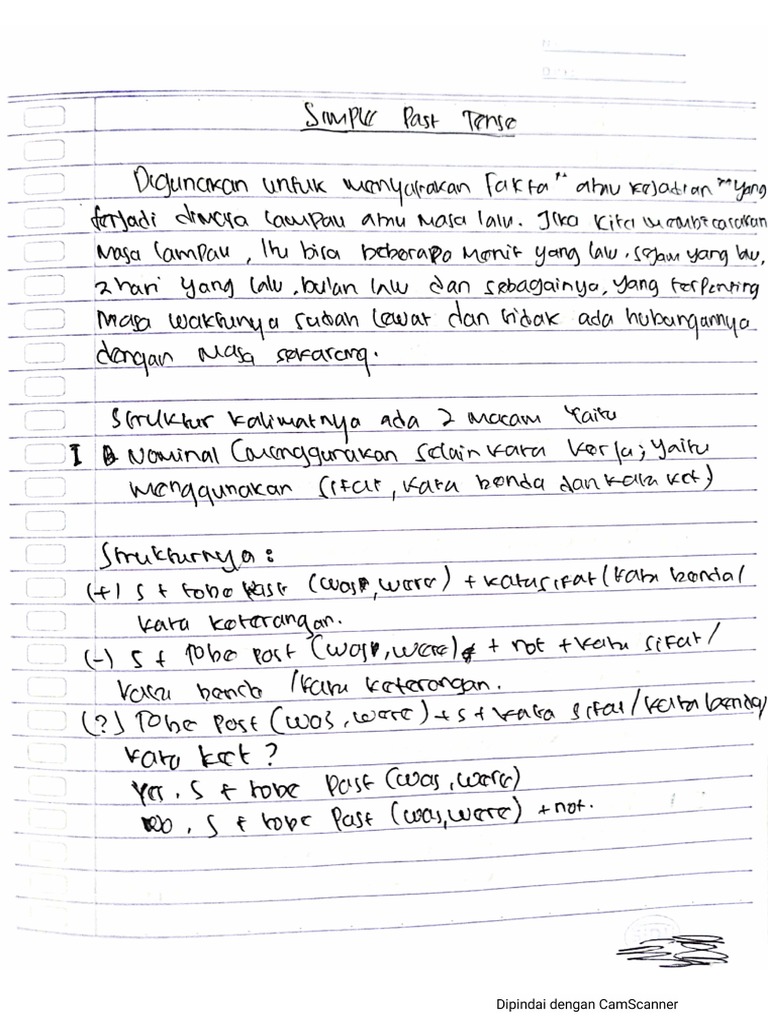 Simple Past Tense
Digunakan untuk menyatakan fakta" atau kejadian "yang
terjadi dimasa lampau atau masa lalu. Jika kita membicarakan
masa lampau, itu bisa beberapa menit yang lalu, sejam yang lalu,
2 hari yang lalu, bulan lalu dan sebagainya, yang terpenting
masa waktunya sudah lewat dan tidak ada hubungannya
dengan masa sekarang.
Struktur kalimatnya ada 2 macam yaitu
I Nominal (menggunakan selain kata kerja; yaitu
menggunakan sifat, kata benda dan kata ket)
Strukturnya :
(+) S + tobe past (was, were) + kata sifat/kata benda/
kata keterangan.
(-) S + Tobe past (was, were) + not + kata sifat/
kata benda /kata keterangan.
(?) Tobe past (was, were) + S + kata sifat/kata benda/
kata ket ?
Yes, S + tobe past (was, were)
No, S + tobe past (was, were) + not.
Dipindai dengan CamScanner